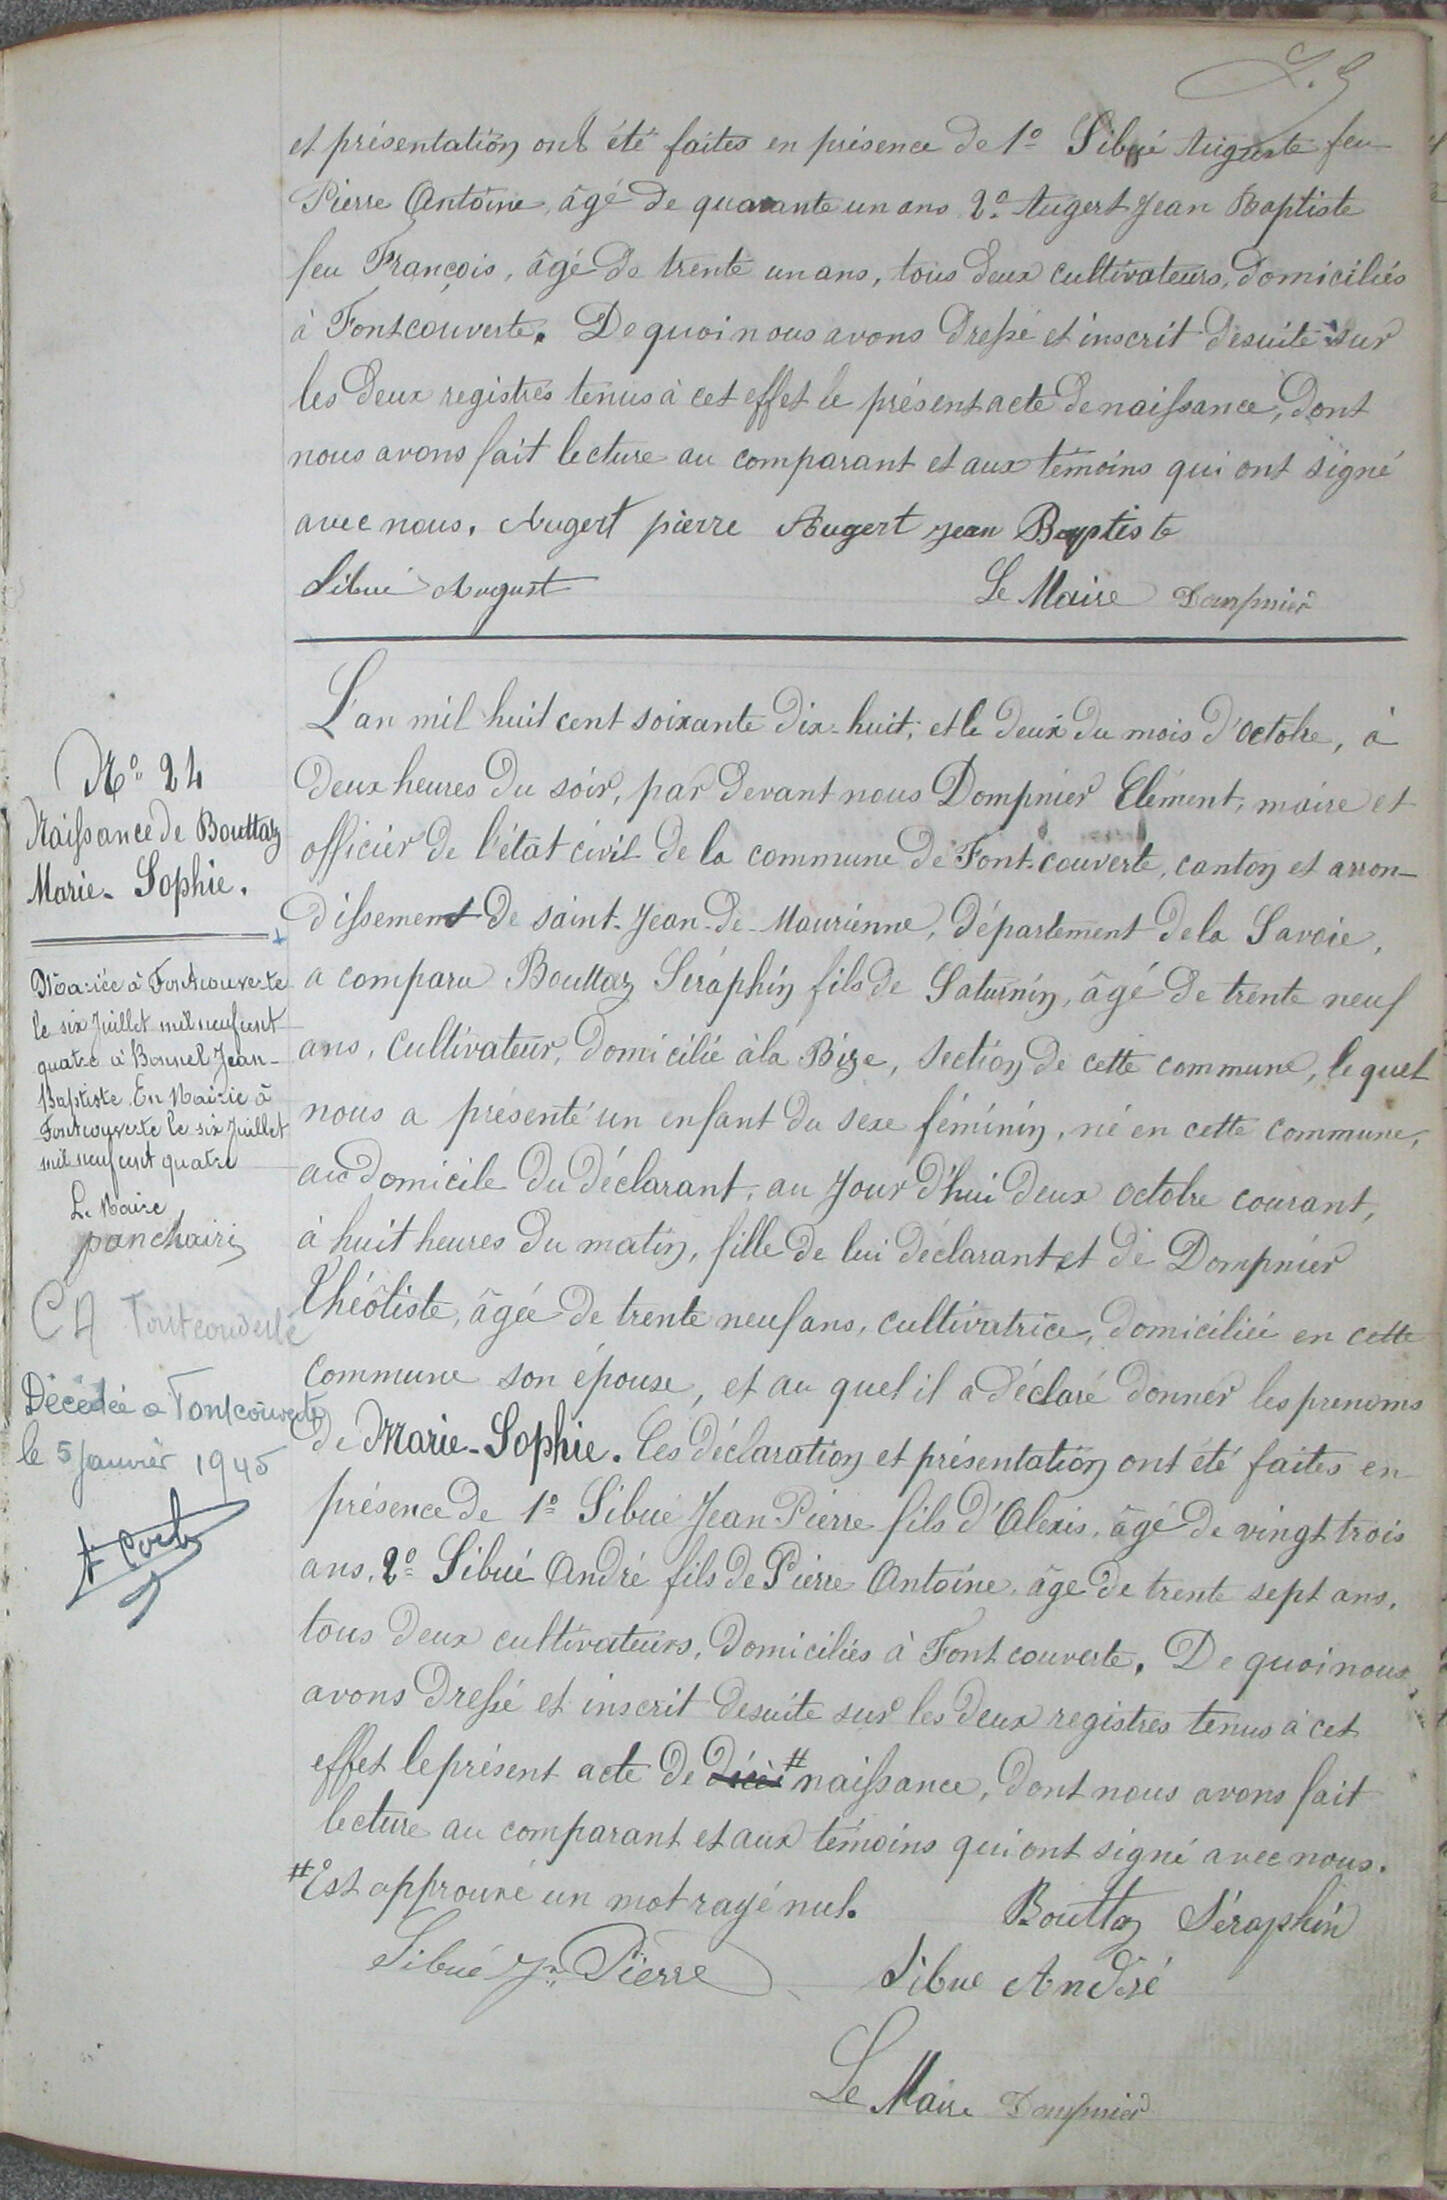 et présentation ont été faites en présence de 1º Sibué Auguste feu
Pierre Antoine, âgé de quarante un ans 2º Augert Jean Baptiste
feu François, âgé de trente un ans, tous deux cultivateurs, domiciliés
à Fontcouverte. De quoi nous avons dressé et inscrit desuite sur
les deux registres tenus à cet effet le présent acte de naissance, dont
nous avons fait lecture au comparant et aux témoins qui ont signé
avec nous. Augert pierre Augert jean Baptiste
Sibué August Le Maire Dompnier
Nº 24
Naissance de Bouttaz
Marie-Sophie.
Mariée à Fontcouverte
le six Juillet mil neuf cent
quatre à Bonnel Jean-
Baptiste. En Mairie à
Fontcouverte le six Juillet
mil neuf cent quatre
Le Maire
CA Fontcouverte
Décédée a Fontcouverte
le 5 Janvier 1945
L'an mil huit cent soixante dix-huit, et le deux du mois d'octobre, à
deux heures du soir, par devant nous Dompnier Clément, maire et
officier de l'état civil de la commune de Font-couverte, canton et arron-
dissement de saint-Jean-de-Maurienne, département de la Savoie,
a comparu Bouttaz Séraphin fils de Saturnin, âgé de trente neuf
ans, cultivateur, domicilié à la Bize, section de cette commune, le quel
nous a présenté un enfant du sexe féminin, né en cette commune,
au domicile du déclarant, au jour d'hui deux octobre courant,
à huit heures du matin, fille de lui déclarant et de Dompnier
Théotiste, âgée de trente neuf ans, cultivatrice, domiciliée en cette
commune son épouse, et au quel il a déclaré donner les prenoms
de Marie-Sophie. Ces déclaration et présentation ont été faites en
présence de 1º Sibué Jean-Pierre fils d'Alexis, âgé de vingt trois
ans, 2º Sibué André fils de Pierre Antoine, âge de trente sept ans,
tous deux cultivateurs, domiciliés à Font couverte. De quoi nous
avons dressé et inscrit desuite sur les deux registres tenus à cet
effet le présent acte de décès # naissance, dont nous avons fait
lecture au comparant et aux témoins qui ont signé avec nous.
# Est approuvé un mot rayé nul. Bouttaz Séraphin
Sibué Jn Pierre Sibue André
Le Maire Dompnier